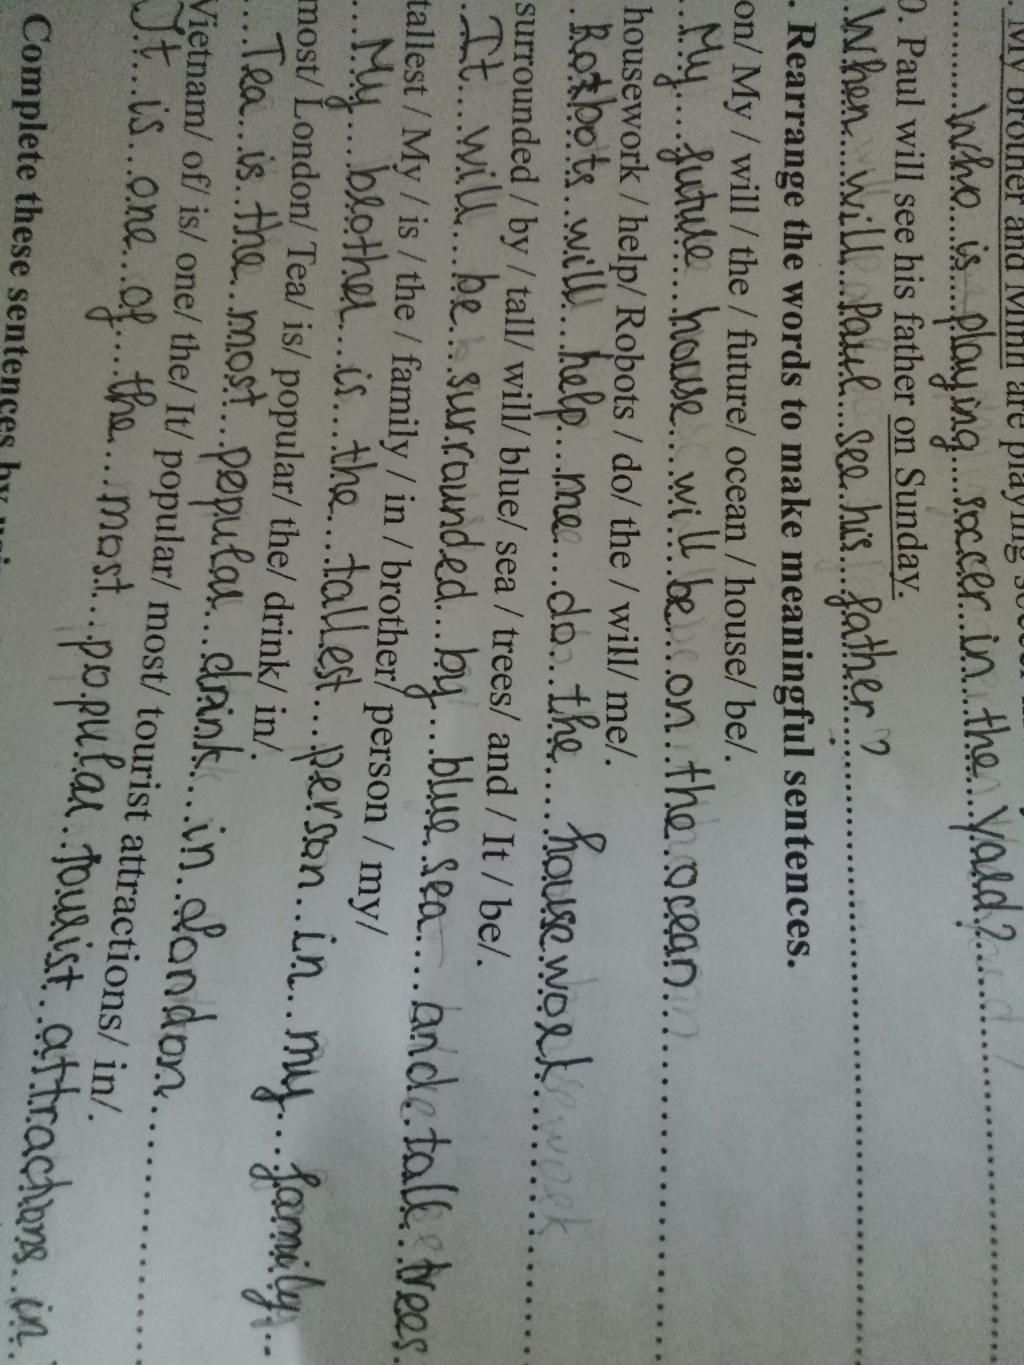 . My brother and Minh are playing soccer
Who is playing soccer in the Yard?
0. Paul will see his father on Sunday.
When will Paul see his father?
. Rearrange the words to make meaningful sentences.
on/ My / will / the / future/ ocean / house/ be/.
My future house will be on the ocean
housework / help/ Robots / do/ the / will/ me/.
Robots will help me do the housework
surrounded / by / tall/ will/ blue/ sea / trees/ and / It / be/.
It will be surrounded by blue sea and tall trees
tallest / My / is / the / family / in / brother/ person / my/
My brother is the tallest person in my family
most/ London/ Tea/ is/ popular/ the/ drink/ in/.
Tea is the most popular drink in London
Vietnam/ of/ is/ one/ the/ It/ popular/ most/ tourist attractions/ in/.
It is one of the most popular Tourist attractions in
Complete these sentences by